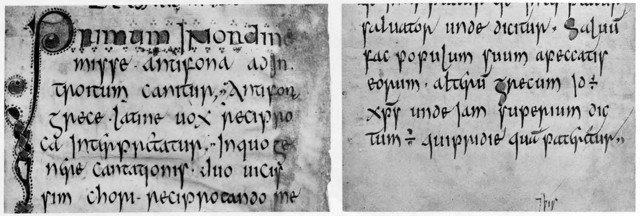 Primum In ordine
misse · antifona ad In
troitum canitur, Antifon
grece · latine uox recipro
ca Interpretatur, In quo ge
nere cantationis · duo uicis
sim chori · reciprocando me
saluator unde dicitur · saluū
fac populum suum a peccatis
eorum · alterū grecum id ÷
xp̄s unde iam superium dic
tum ÷ qui pridie quā pateretur ,,